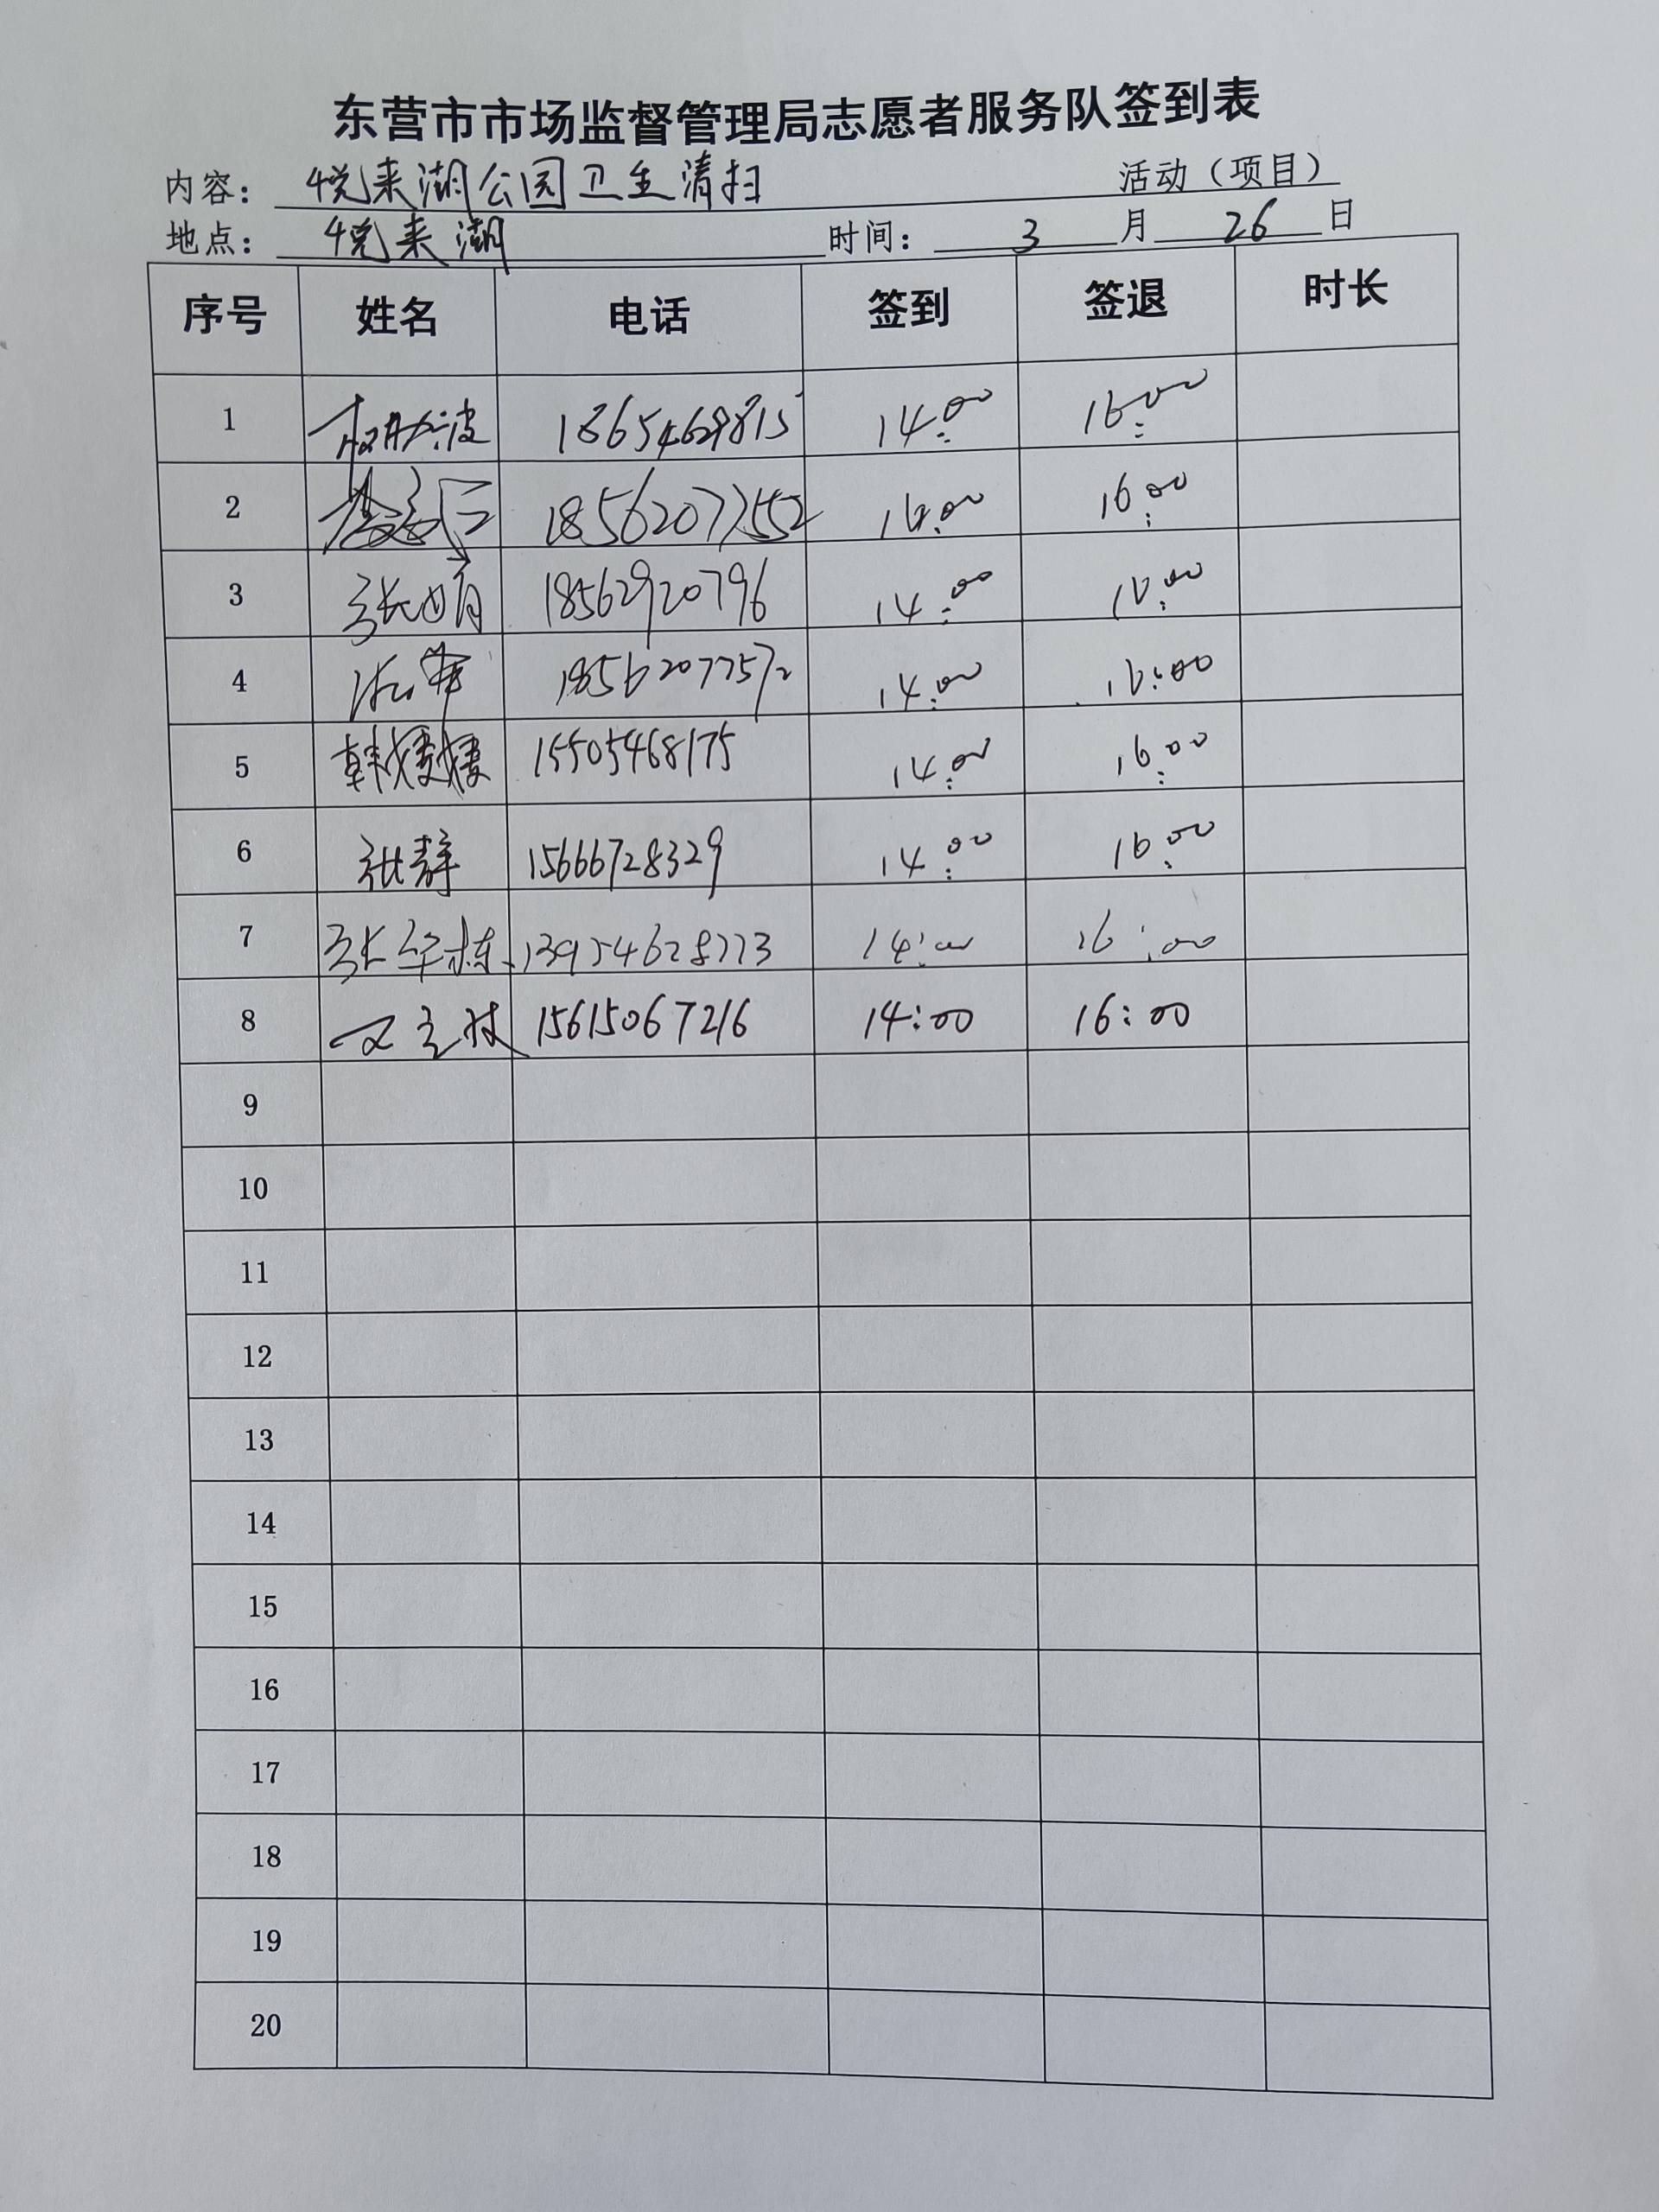 东营市市场监督管理局志愿者服务队签到表
内容： 悦来湖公园卫生清扫 活动（项目）
地点： 悦来湖 时间： 3 月 26 日
序号 姓名 电话 签到 签退 时长
1 14:00 16:00
2 16:00
3 张娟 18562920796 14:00 16:00
4 18562077572 14:00 16:00
5 韩媛媛 15505468175 14:00 16:00
6 张静 15666728329 14:00 16:00
7 张华栋 14:00 16:00
8 15615067216 14:00 16:00
9
10
11
12
13
14
15
16
17
18
19
20